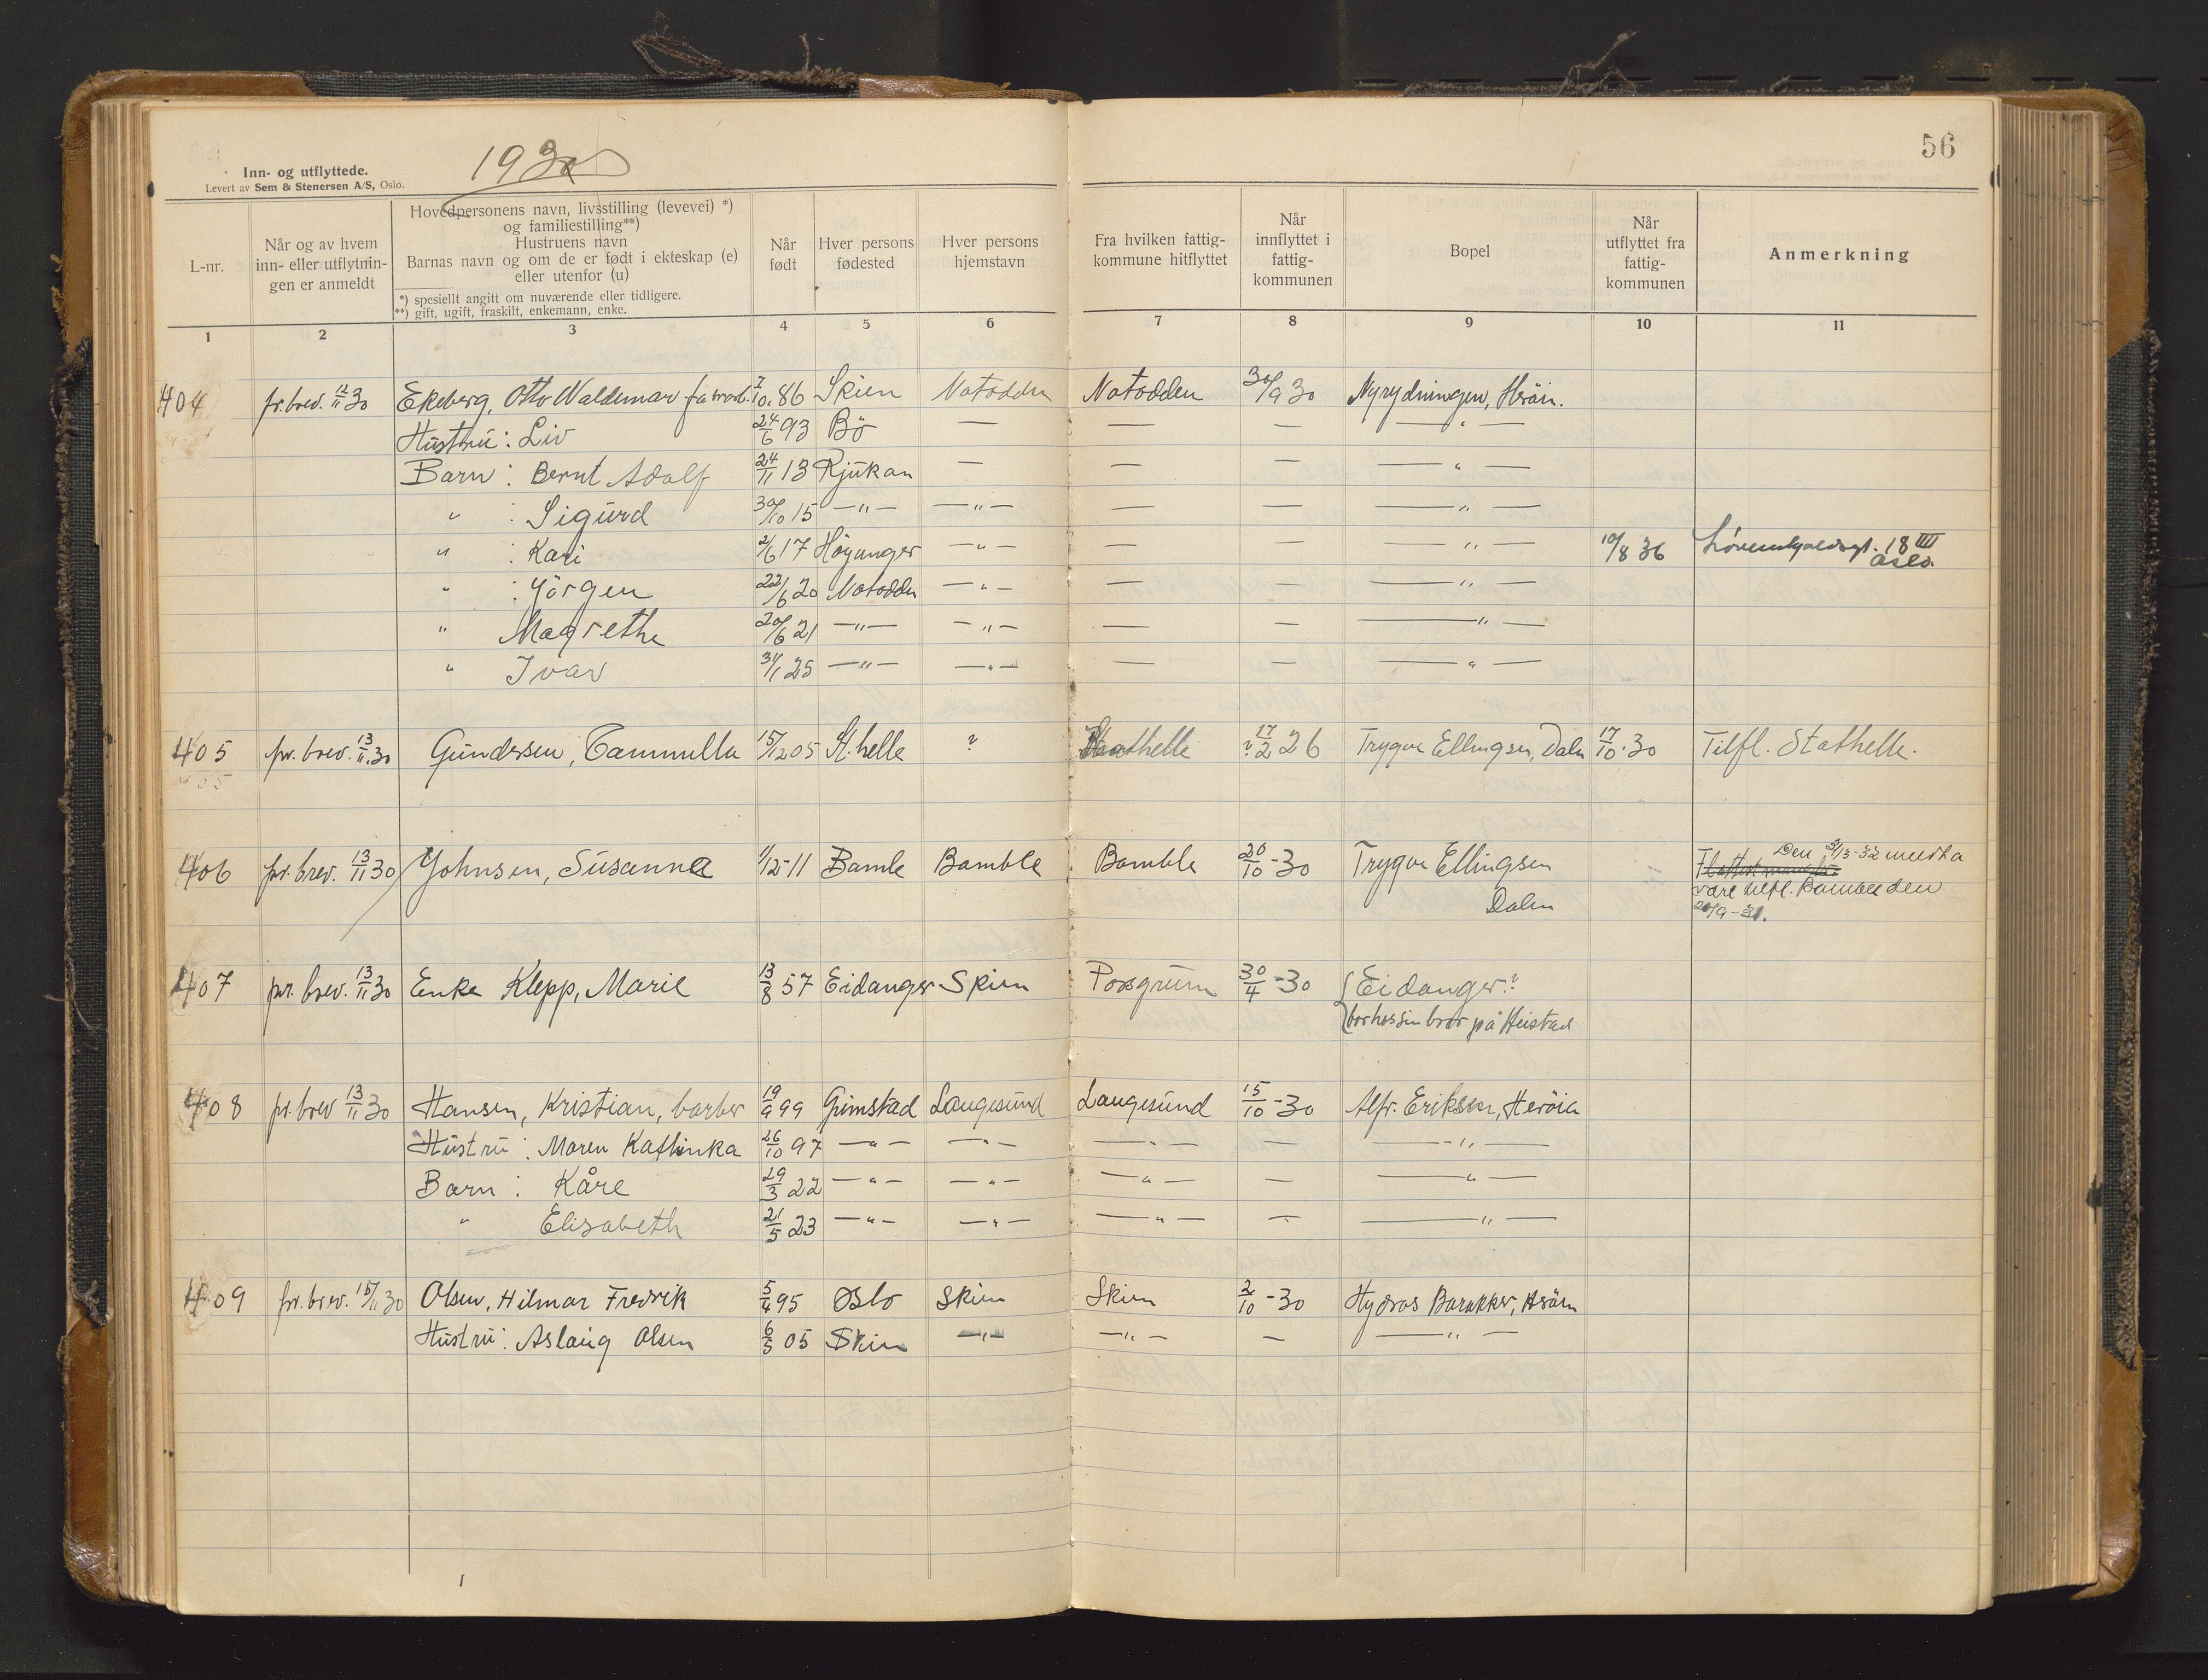 1930
56
Inn- og utflyttede.
Levert av Sem & Stenersen A/S, Oslo.
L-nr.
Når og av hvem inn- eller utflytnin- gen er anmeldt
Hovedpersonens navn, livsstilling (levevei) *) og familiestilling**)
Hustruens navn
Barnas navn og om de er født i ekteskap (e) eller utenfor (u)
*) spesiellt angitt om nuværende eller tidligere.
**) gift, ugift, fraskilt, enkemann, enke.
Når født
Hver persons fødested
Hver persons hjemstavn
Fra hvilken fattig- kommune hitflyttet
Når innflyttet i fattig- kommunen
Bopel
Når utflyttet fra fattig- kommunen
Anmerkning
1 2 3 4 5 6 7 8 9 10 11
404 pr. brev. 12/11 30 Ekeberg, Otto Waldemar fabrarb. 7/10 86 Skien Notodden Notodden 30/9 30 Nyrydningen, Heröin.
Hustru: Liv 24/6 93 Bö — — — — " —
Barn: Bernt Adolf 24/11 13 Rjukan — — — — " —
" : Sigurd 30/10 15 — " — — " — — — — " —
" : Kari 2/6 17 Höyanger — " — — — — " — 10/8 36 Løvenskjoldsgt. 18 III Oslo.
" : Jörgen 22/6 20 Notodden — " — — — — " —
" Magrethe 20/6 21 — " — — " — — — — " —
" Ivar 31/1 25 — " — — " — — — — " —
405 pr. brev. 13/11 30 Gundersen, Cammilla 15/12 05 St. helle ? Stathelle ? 17/2 26 Trygve Ellingsen, Dalen 17/10 30 Tilfl. Stathelle.
406 pr. brev. 13/11 30 Johnsen, Susanna 1/12-11 Bamle Bamble Bamble 20/10-30 Trygve Ellingsen Dalen
Den 3/3-32 meldt a
være utfl. Bamble den
20/9-31.
407 pr. brev. 13/11 30 Enke Klepp, Marie 13/8 57 Eidanger Skien Porsgrunn 30/4-30 Eidanger?
bor hos sin bror på Heistad
408 pr. brev 13/11 30 Hansen, Kristian, barber 19/9 99 Grimstad Langesund Langesund 15/10-30 Alfr. Eriksen, Heröia
Hustru: Maren Kathinka 26/10 97 — " — — " — — " — — — " —
Barn: Kåre 29/3 22 — " — — " — — " — — — " —
" Elisabeth 21/5 23 — " — — " — — " — — — " —
409 pr. brev. 15/11 30 Olsen, Hilmar Fredrik 5/4 95 Oslo Skien Skien 2/10-30 Hydros Barakker, Heröen
Hustru: Aslaug Olsen 6/5 05 Skien — " — — " — — — " —